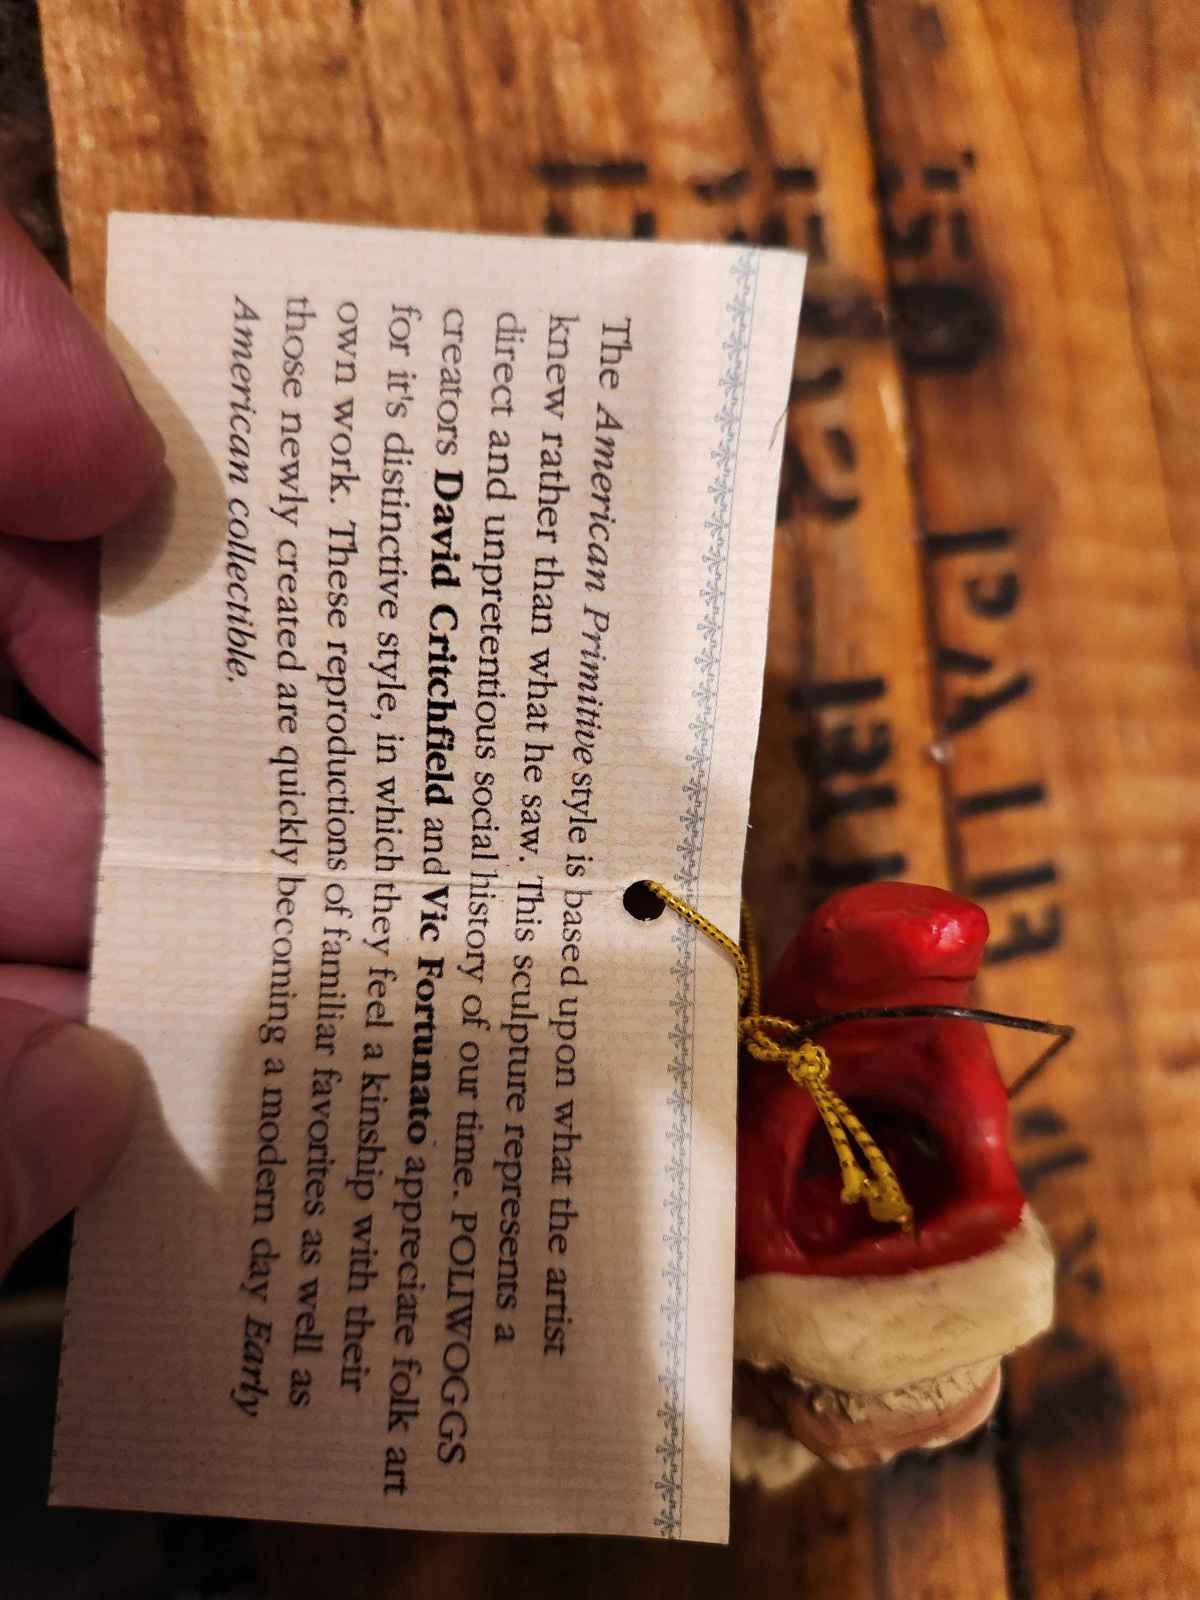 The American Primitive style is based upon what the artist
knew rather than what he saw. This sculpture represents a
direct and unpretentious social history of our time. POLIWOGGS
creators David Critchfield and Vic Fortunato appreciate folk art
for it's distinctive style, in which they feel a kinship with their
own work. These reproductions of familiar favorites as well as
those newly created are quickly becoming a modern day Early
American collectible.